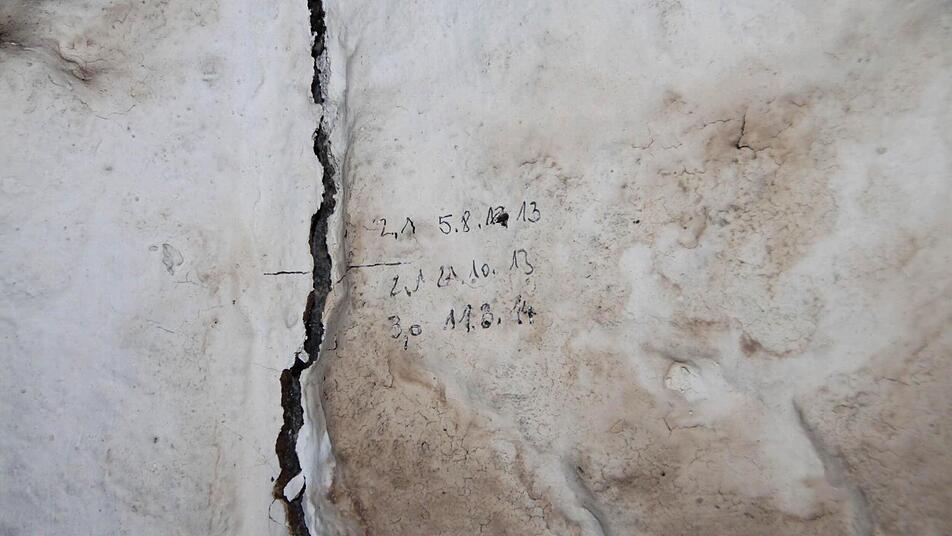 2,1 5.8. 13
2,1 21.10. 13
3,0 11.8. 14